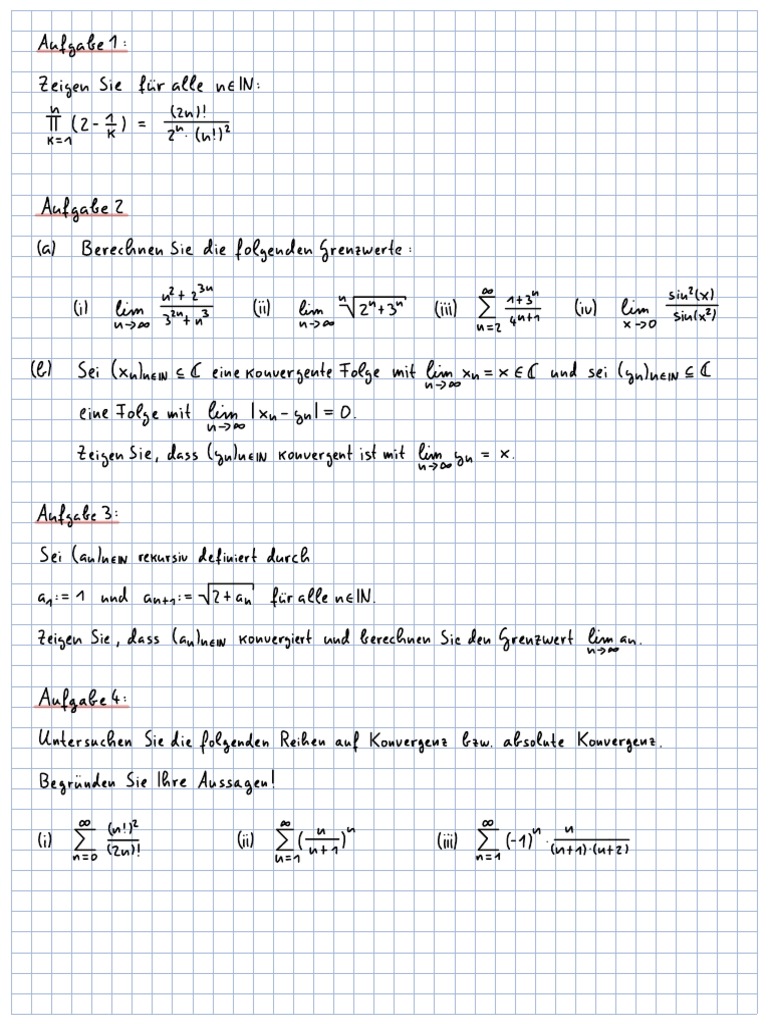 Aufgabe 1:
Zeigen Sie für alle n∈ℕ:
∏_{k=1}^{n} (2 - 1/k) = (2n)! / (2^n · (n!)^2)
Aufgabe 2
(a) Berechnen Sie die folgenden Grenzwerte:
(i) lim_{n→∞} (n^2 + 2^{3n}) / (3^{2n} + n^3) (ii) lim_{n→∞} ⁿ√(2^n + 3^n) (iii) ∑_{n=2}^{∞} (1+3^n) / 4^{n+1} (iv) lim_{x→0} sin^2(x) / sin(x^2)
(b) Sei (x_n)_{n∈ℕ} ⊆ ℂ eine konvergente Folge mit lim_{n→∞} x_n = x ∈ ℂ und sei (y_n)_{n∈ℕ} ⊆ ℂ
eine Folge mit lim_{n→∞} |x_n - y_n| = 0.
Zeigen Sie, dass (y_n)_{n∈ℕ} konvergent ist mit lim_{n→∞} y_n = x.
Aufgabe 3:
Sei (a_n)_{n∈ℕ} rekursiv definiert durch
a_1 := 1 und a_{n+1} := √(2 + a_n) für alle n∈ℕ.
Zeigen Sie, dass (a_n)_{n∈ℕ} konvergiert und berechnen Sie den Grenzwert lim_{n→∞} a_n.
Aufgabe 4:
Untersuchen Sie die folgenden Reihen auf Konvergenz bzw. absolute Konvergenz.
Begründen Sie Ihre Aussagen!
(i) ∑_{n=0}^{∞} (n!)^2 / (2n)! (ii) ∑_{n=1}^{∞} (n / (n+1))^n (iii) ∑_{n=1}^{∞} (-1)^n · n / ((n+1)·(n+2))